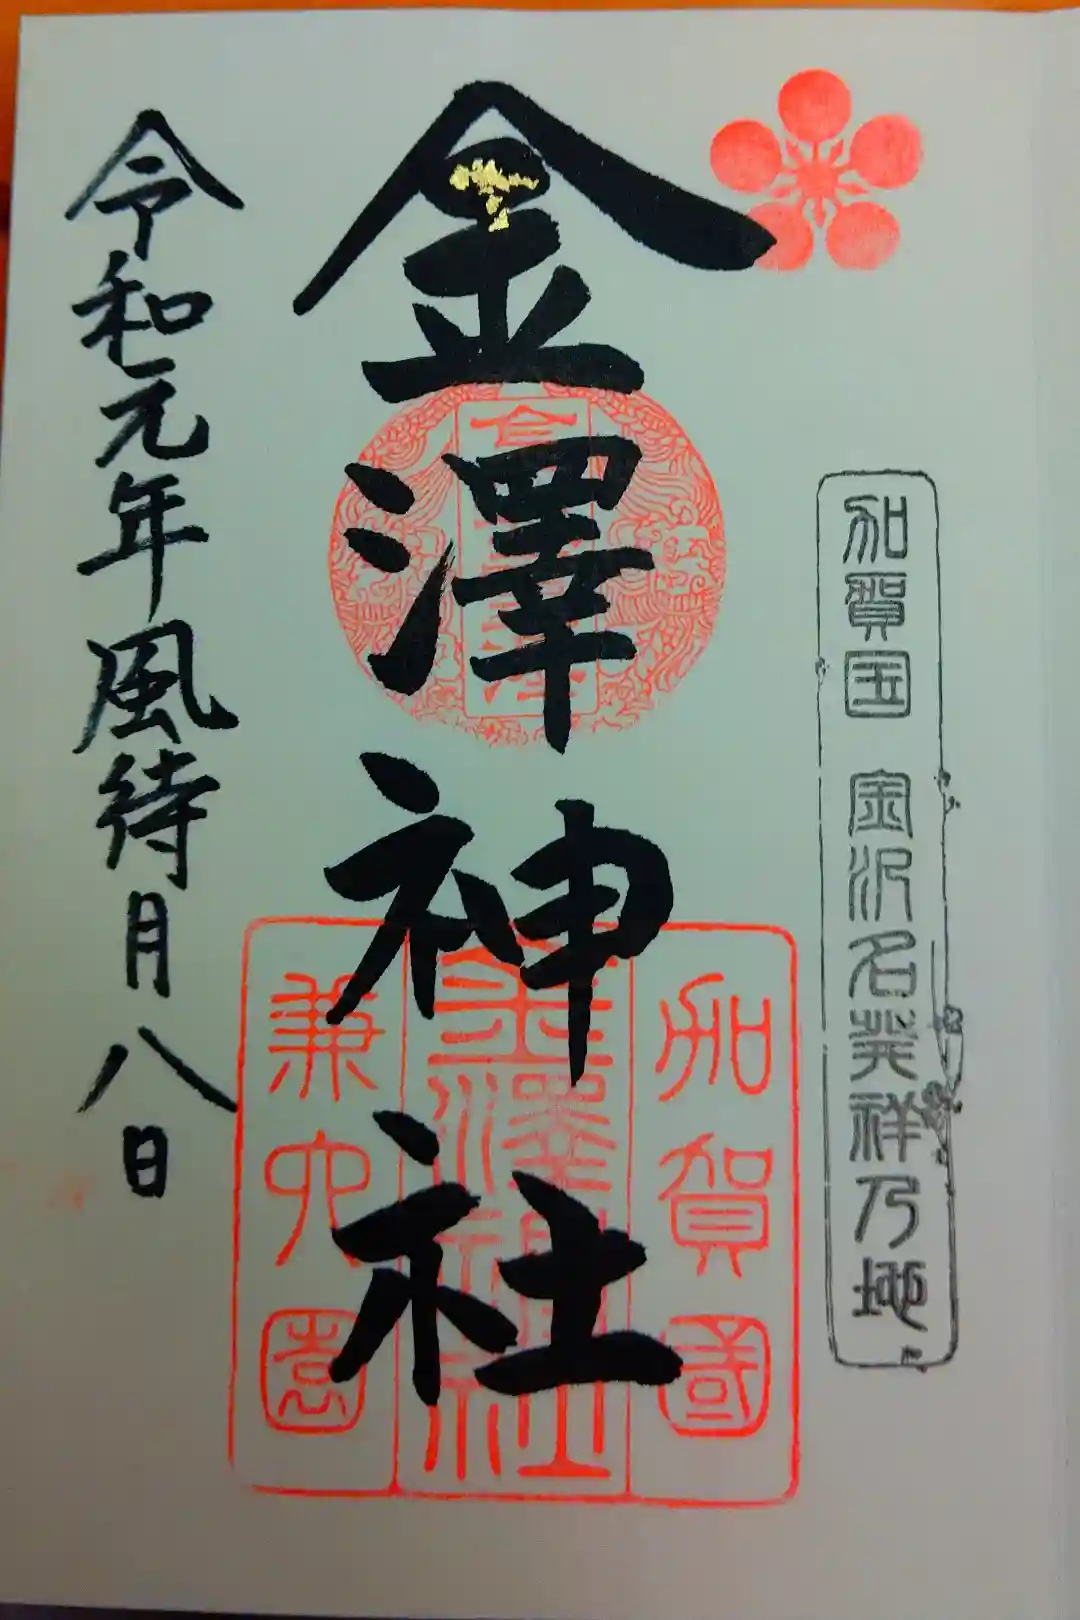 加賀国 金沢名発祥乃地
金澤神社
金澤
加賀國
金澤神社
兼六園
令和元年風待月八日